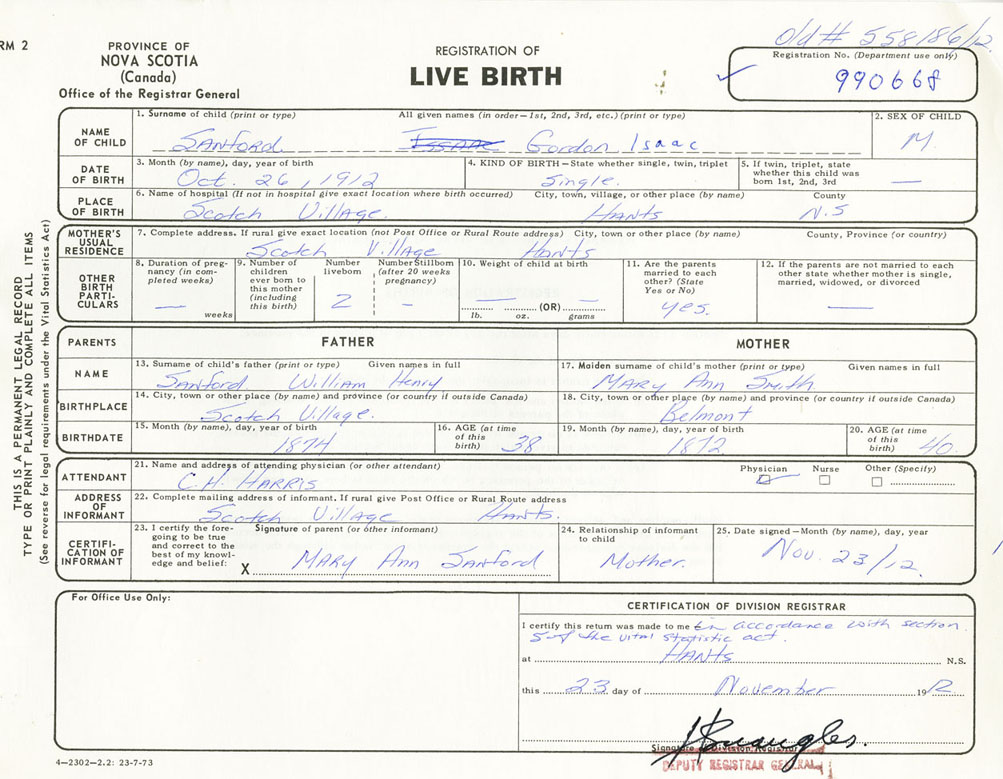 RM 2
PROVINCE OF
NOVA SCOTIA
(Canada)
Office of the Registrar General
REGISTRATION OF
LIVE BIRTH
Old # 558186/12
Registration No. (Department use only)
990668
THIS IS A PERMANENT LEGAL RECORD
TYPE OR PRINT PLAINLY AND COMPLETE ALL ITEMS
(See reverse for legal requirements under the Vital Statistics Act)
NAME OF CHILD
1. Surname of child (print or type) All given names (in order—1st, 2nd, 3rd, etc.) (print or type)
Sanford Gordon Isaac
2. SEX OF CHILD
M.
DATE OF BIRTH
3. Month (by name), day, year of birth
Oct. 26, 1912
4. KIND OF BIRTH—State whether single, twin, triplet
Single.
5. If twin, triplet, state whether this child was born 1st, 2nd, 3rd
—
PLACE OF BIRTH
6. Name of hospital (If not in hospital give exact location where birth occurred) City, town, village, or other place (by name) County
Scotch Village. Hants N.S
MOTHER'S USUAL RESIDENCE
7. Complete address. If rural give exact location (not Post Office or Rural Route address) City, town or other place (by name) County, Province (or country)
Scotch Village Hants
OTHER BIRTH PARTI-CULARS
8. Duration of preg-nancy (in com-pleted weeks)
— weeks
9. Number of children ever born to this mother (including this birth)
Number liveborn
2
Number Stillborn (after 20 weeks pregnancy)
–
10. Weight of child at birth
— (OR) —
lb. oz. grams
11. Are the parents married to each other? (State Yes or No)
yes.
12. If the parents are not married to each other state whether mother is single, married, widowed, or divorced
—
PARENTS FATHER MOTHER
NAME
13. Surname of child's father (print or type) Given names in full
Sanford William Henry
17. Maiden surname of child's mother (print or type) Given names in full
Mary Ann Smith
BIRTHPLACE
14. City, town or other place (by name) and province (or country if outside Canada)
Scotch Village.
18. City, town or other place (by name) and province (or country if outside Canada)
Belmont
BIRTHDATE
15. Month (by name), day, year of birth
1874
16. AGE (at time of this birth)
38
19. Month (by name), day, year of birth
1872
20. AGE (at time of this birth)
40.
ATTENDANT
21. Name and address of attending physician (or other attendant)
C.H. HARRIS
Physician Nurse Other (Specify)
ADDRESS OF INFORMANT
22. Complete mailing address of informant. If rural give Post Office or Rural Route address
Scotch Village Hants.
CERTIFI-CATION OF INFORMANT
23. I certify the fore-going to be true and correct to the best of my knowl-edge and belief:
Signature of parent (or other informant)
X Mary Ann Sanford
24. Relationship of informant to child
Mother.
25. Date signed—Month (by name), day, year
Nov. 23/12.
For Office Use Only:
CERTIFICATION OF DIVISION REGISTRAR
I certify this return was made to me in accordance with section
5 of the vital statistic act.
at HANTS N.S.
this 23 day of November 1912
Signature of Division Registrar
DEPUTY REGISTRAR GENERAL
4—2302—2.2: 23-7-73